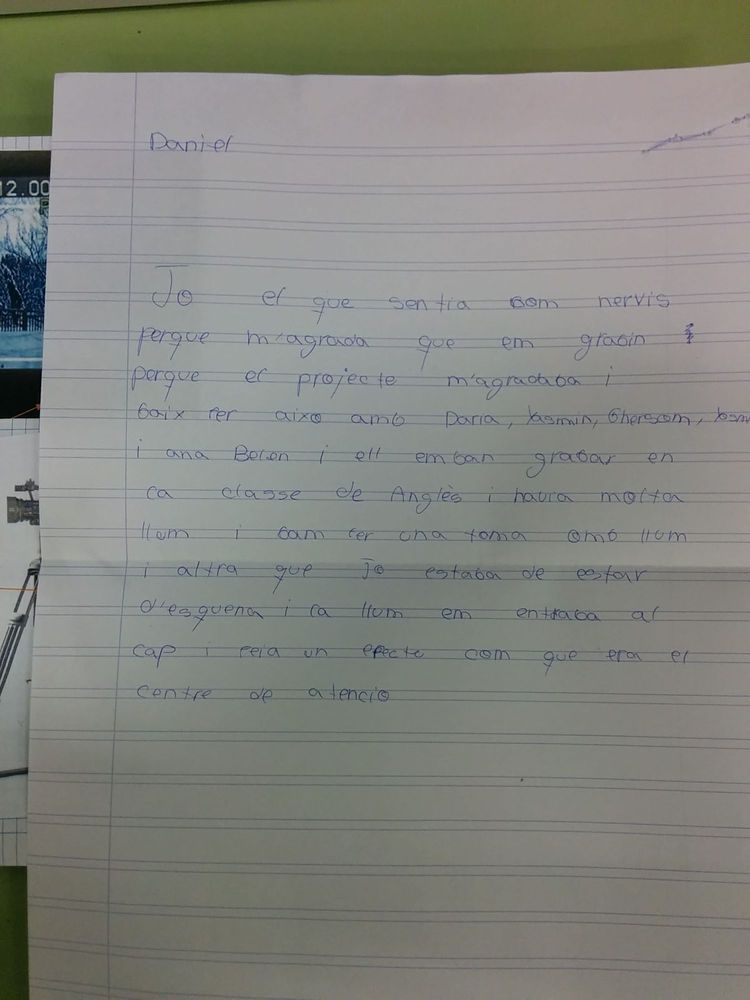 12.00
Daniel
Jo el que sentia som nervis
perque m'agrada que em grabin
perque el projecte m'agradaba i
baix fer aixo amb Daria, Yasmin, Gherscom,
i ana Belen i ell emban grabar en
la classe de Anglès i havia molta
llum i bam fer una toma amb llum
i altra que Jo estaba de estar
d'esquena i la llum em entraba al
cap i feia un efecte com que era el
centre de atencio